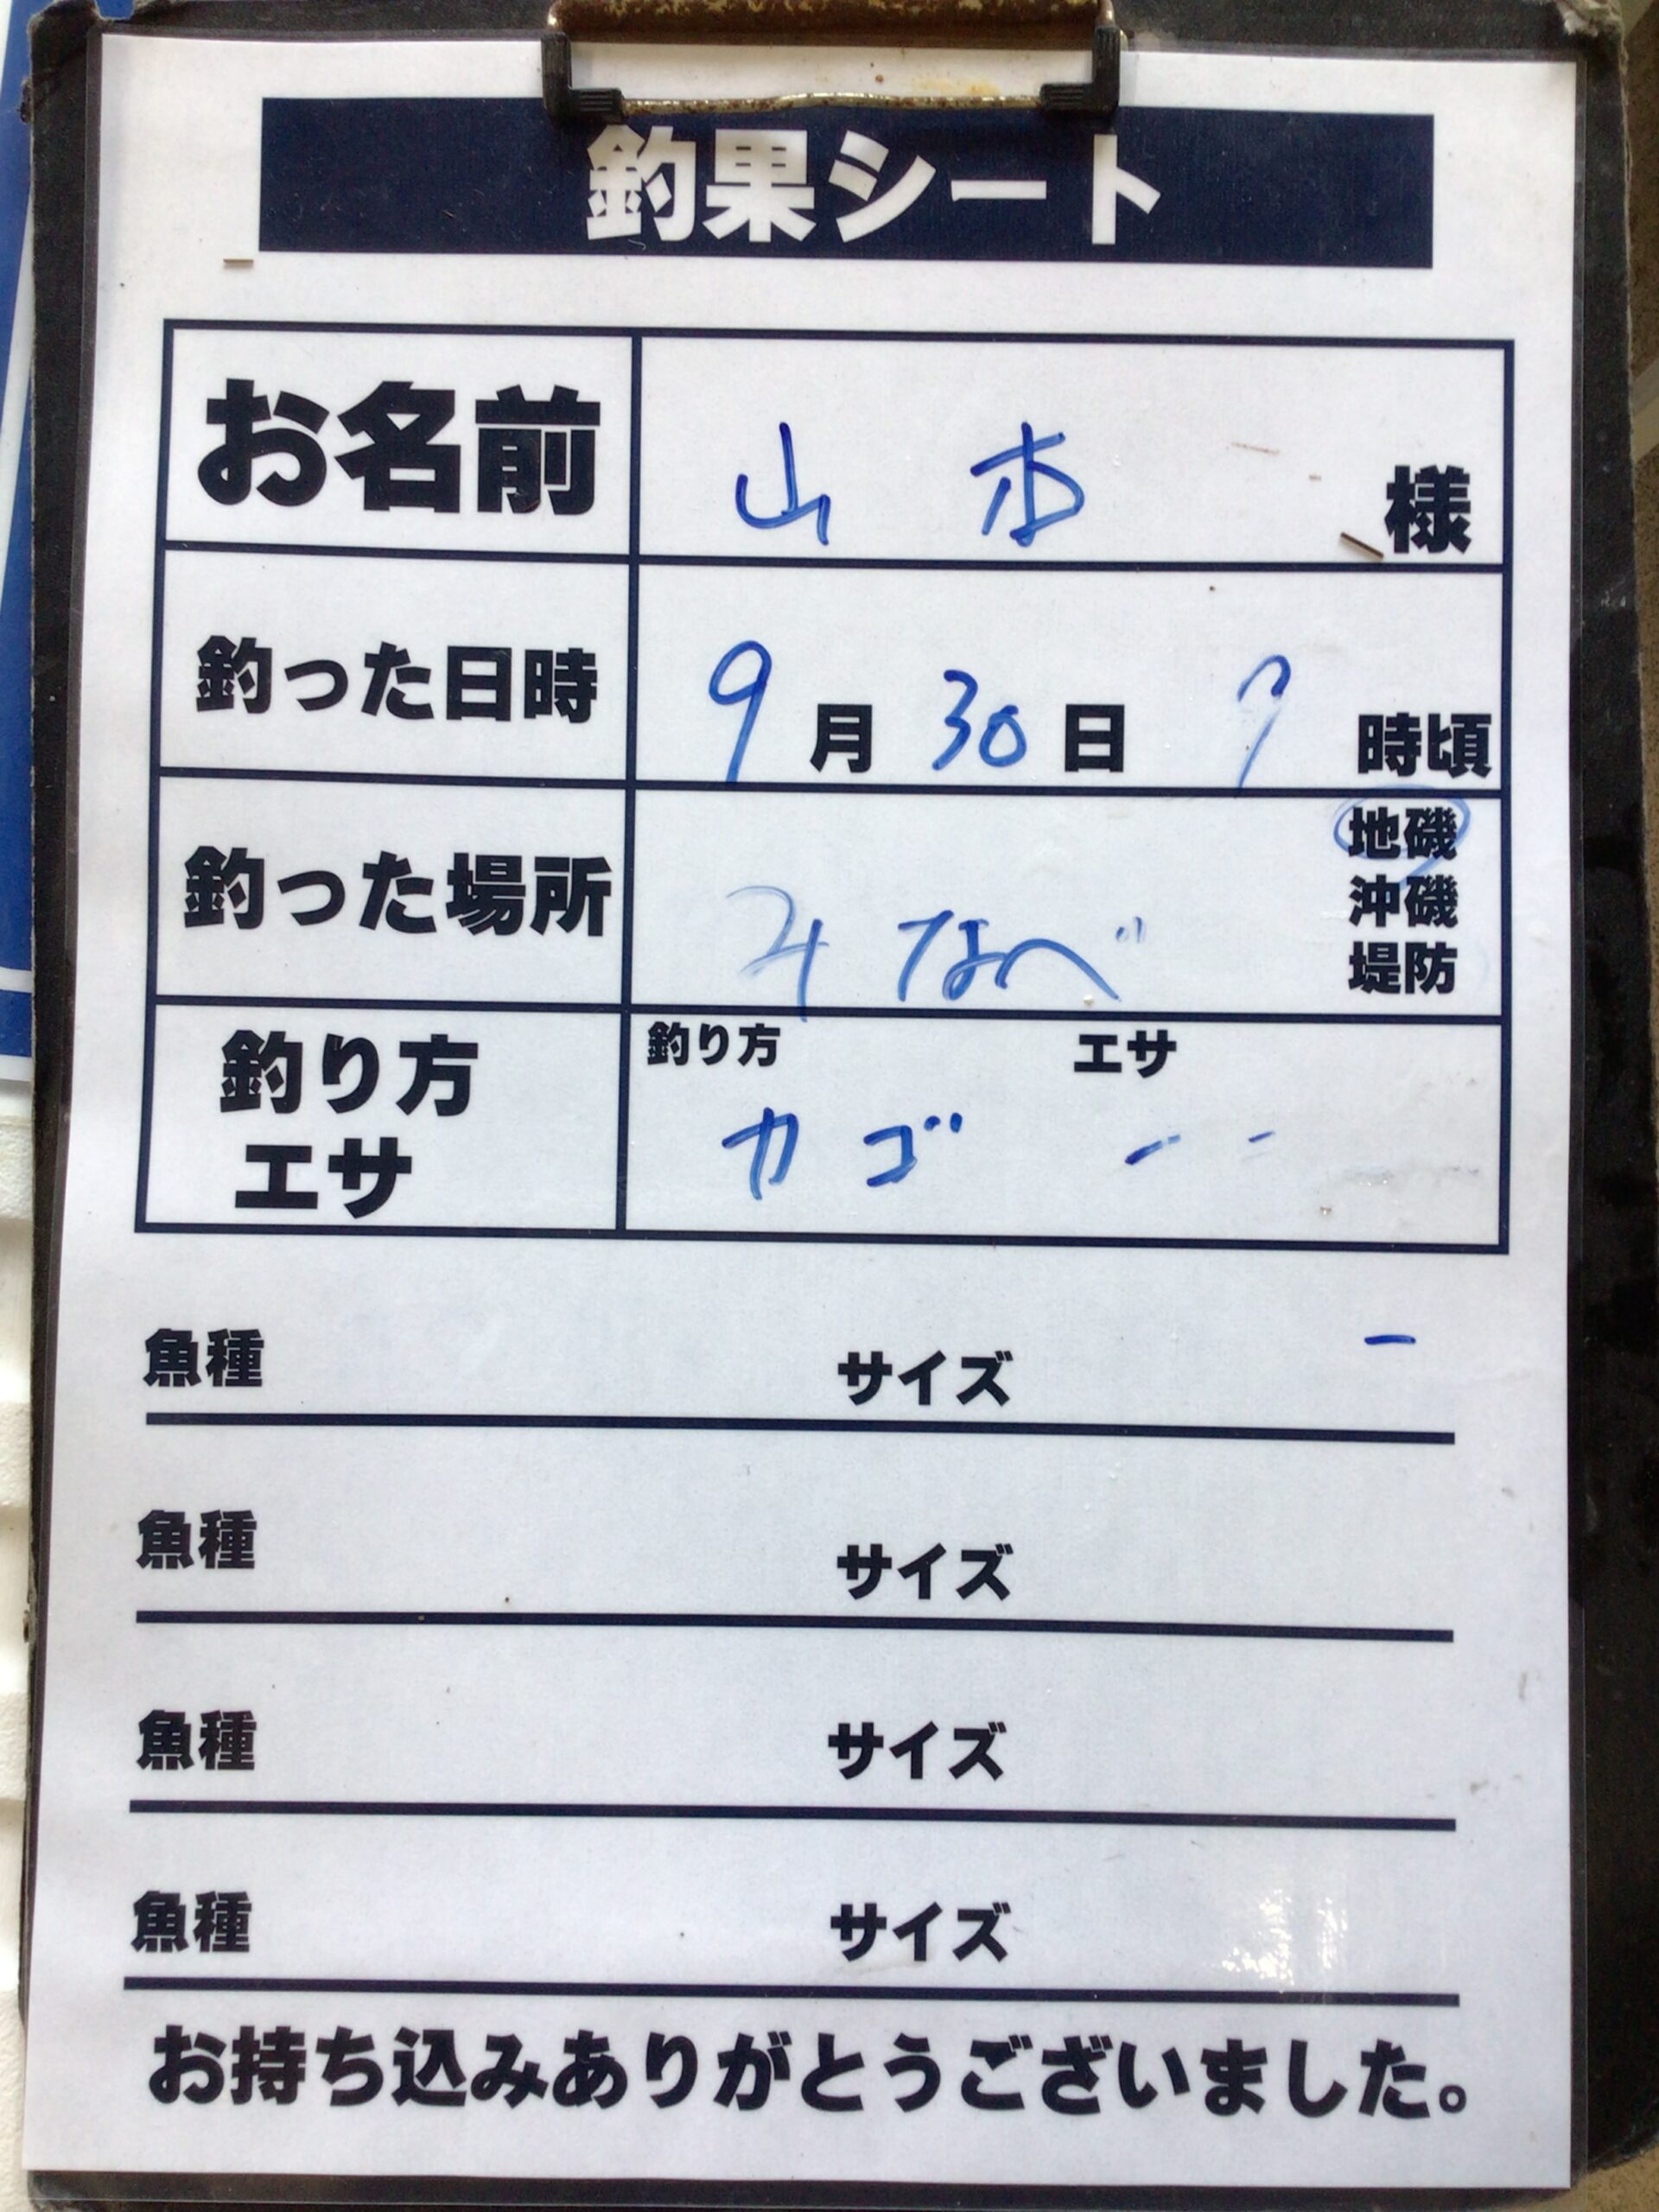 釣果シート
お名前 山本 様
釣った日時 9月30日 ? 時頃
釣った場所 みなべ
地磯
沖磯
堤防
釣り方 エサ
釣り方 エサ
カゴ --
魚種 サイズ -
魚種 サイズ
魚種 サイズ
魚種 サイズ
お持ち込みありがとうございました。